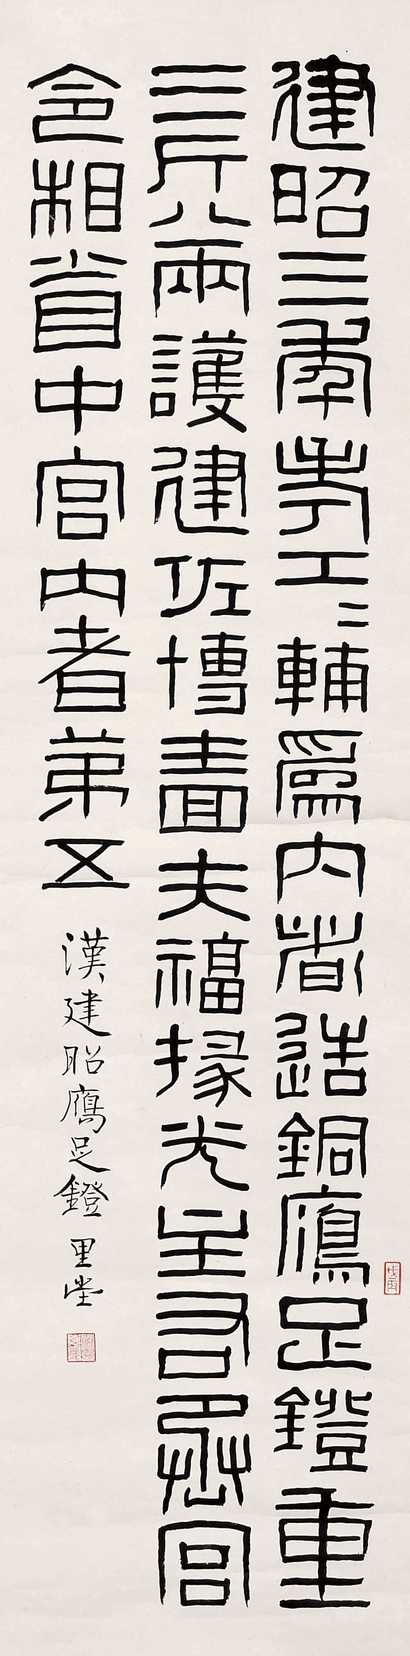 建昭三年考工〻輔爲内者造銅鴈足鐙重
三斤八兩護建佐博嗇夫福掾光主右丞宮
令相省中宮内者第五
漢建昭鴈足鐙 里堂